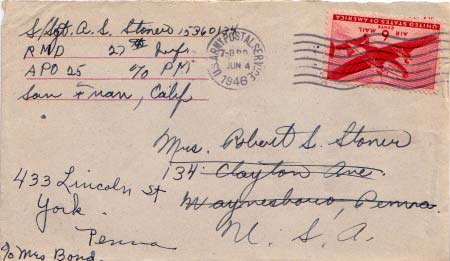 S/Sgt. A. S. Stoner 15360134
RND 27th Infr.
APO 25 c/o PM
San Fran, Calif
U.S. ARMY POSTAL SERVICE
JUN 4
1946
UNITED STATES OF AMERICA
6 CENTS
AIR MAIL
Mrs. Robert S. Stoner
134 Clayton Ave.
Waynesboro, Penna.
U. S. A.
433 Lincoln St
York.
Penna
c/o Mrs Bond.